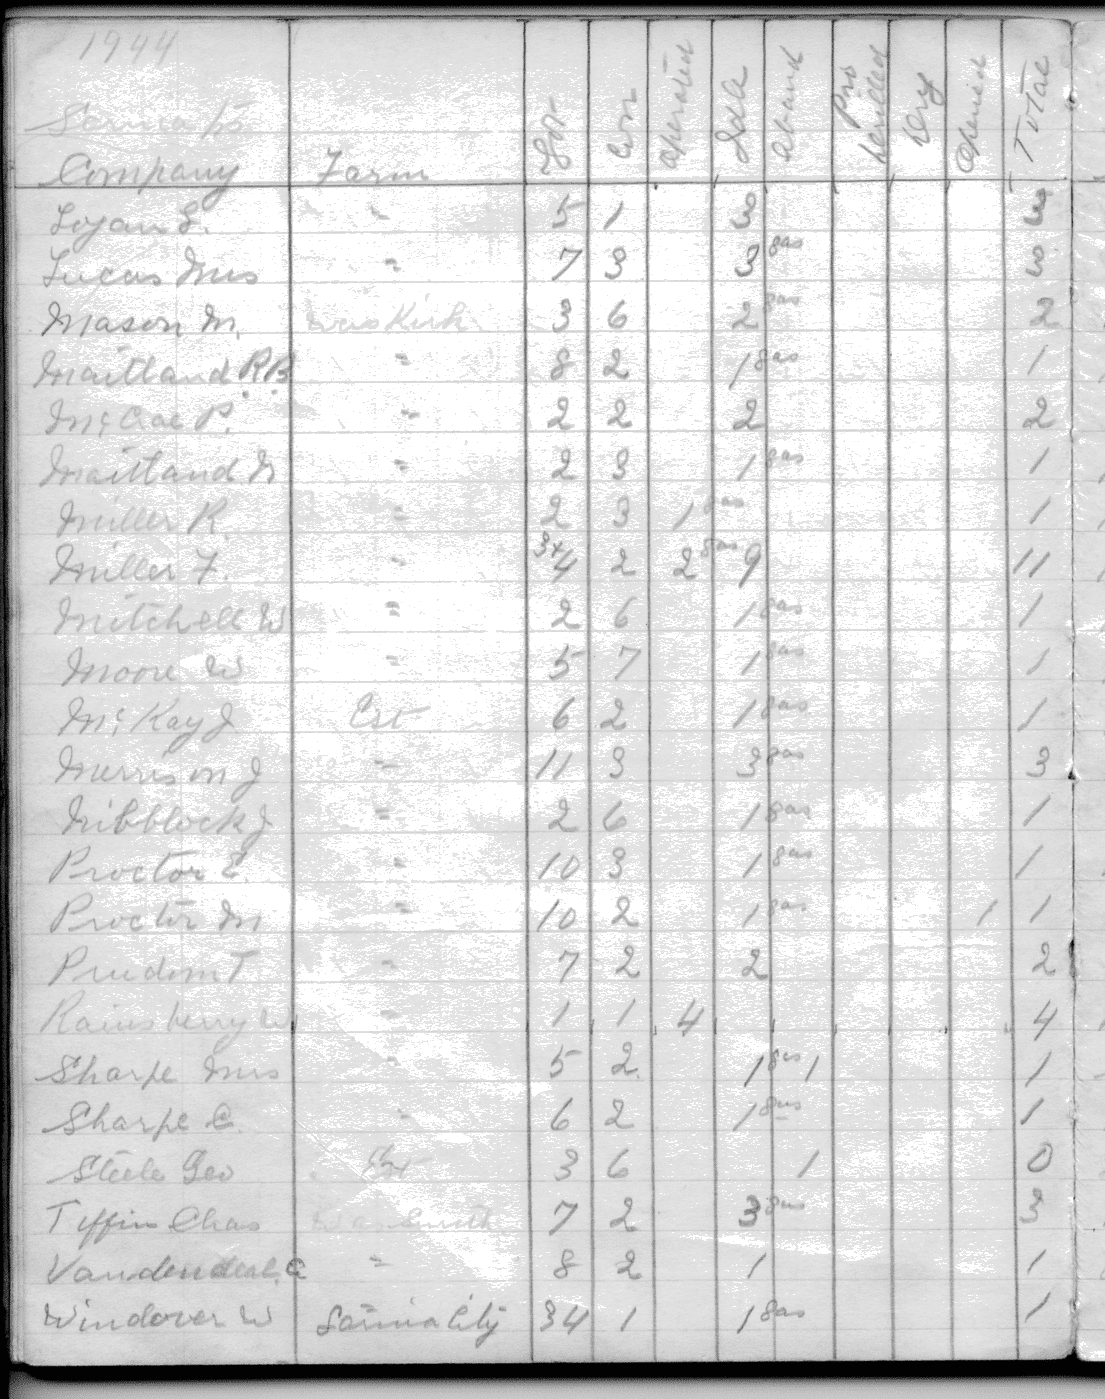 1944
Sarnia
Company Farm Lot Con Operated Idle Aband Pro Drilled Dry Opened Total
Logan S. " 5 1 3 3
Lucas Mrs " 7 3 3 gas 3
Mason M. was Kirk 3 6 2 gas 2
Maitland R.B. " 8 2 1 gas 1
McCrae P. " 2 2 2 2
Maitland " 2 3 1 gas 1
Miller R. " 2 3 1 gas 1
Miller F. " 3+4 2 2 gas 9 11
Mitchell W " 2 6 1 gas 1
Moore W " 5 7 1 gas 1
McKay J Est 6 2 1 gas 1
Morrison J " 11 3 3 gas 3
Nibblock J " 2 6 1 gas 1
Proctor E. " 10 3 1 gas 1
Proctor M " 10 2 1 gas 1 1
Prudom T " 7 2 2 2
Rainsberry W " 1 1 4 4
Sharpe Mrs " 5 2 1 gas 1 1
Sharpe C. " 6 2 1 gas 1
Steele Geo Est 3 6 1 0
Tiffin Chas Was Smith 7 2 3 gas 3
C " 8 2 1 1
Windover W Sarnia City 34 1 1 gas 1